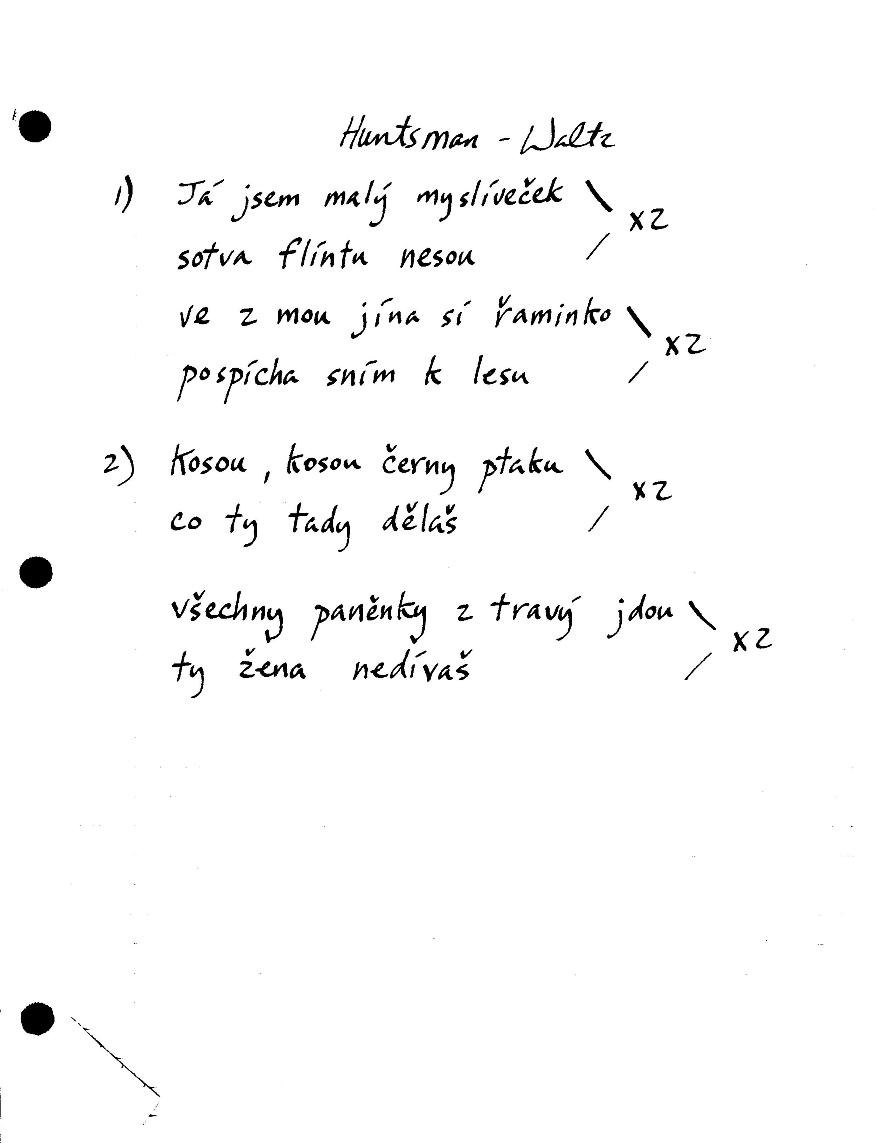 Huntsman - Waltz
1) Já jsem malý myslíveček \ x2
sotva flíntu nesou /
ve z mou jína sí řaminko \ x2
pospícha sním k lesu /
2) Kosou, kosou černy ptaku \ x2
co ty tady děláš /
všechny paněnky z travý jdou \ x2
ty žena nedívaš /